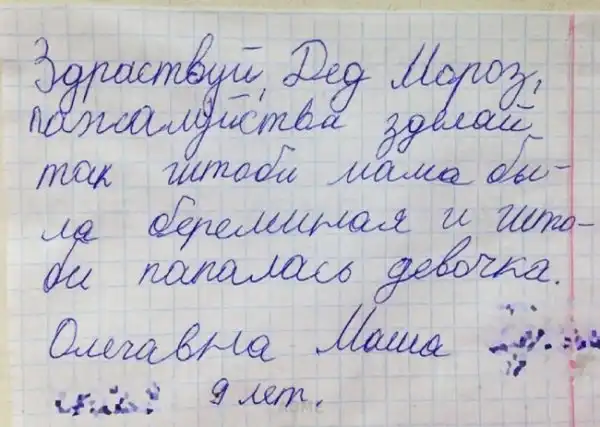 Здраствуй, Дед Мороз,
пажалуйства зделай
так читоби мама бы-
ла береминая и что-
би папалась девочка.
Олечавна Маша
9 лет.